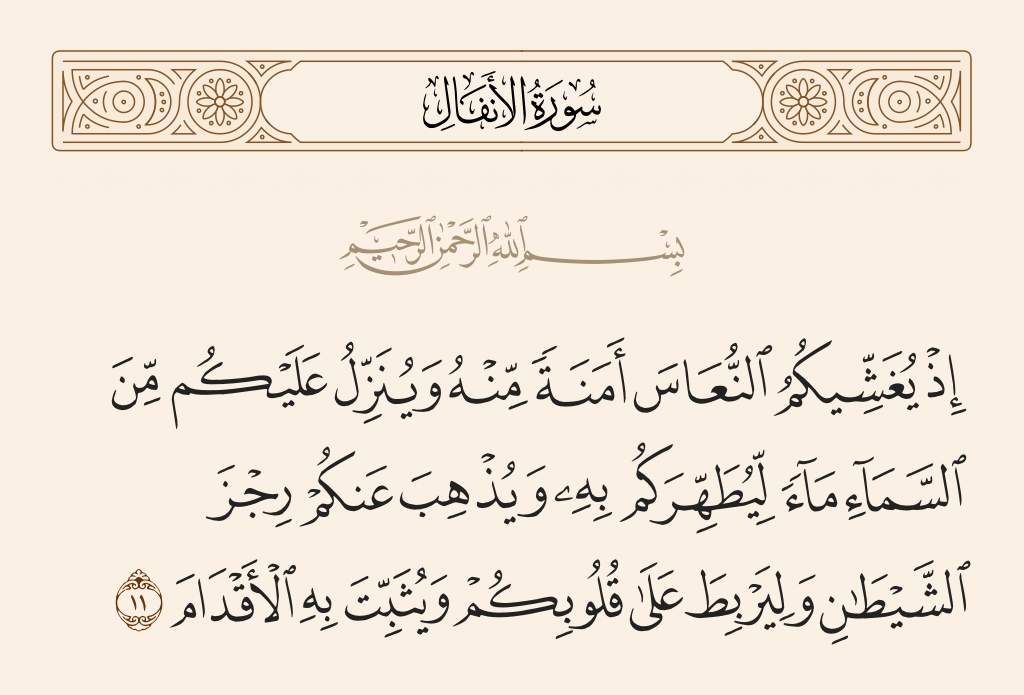 سُورَةُ الأَنفَالِ
بِسْمِ ٱللَّهِ ٱلرَّحْمَٰنِ ٱلرَّحِيمِ
إِذْ يُغَشِّيكُمُ ٱلنُّعَاسَ أَمَنَةً مِّنْهُ وَيُنَزِّلُ عَلَيْكُم مِّنَ
ٱلسَّمَآءِ مَآءً لِّيُطَهِّرَكُم بِهِۦ وَيُذْهِبَ عَنكُمْ رِجْزَ
ٱلشَّيْطَٰنِ وَلِيَرْبِطَ عَلَىٰ قُلُوبِكُمْ وَيُثَبِّتَ بِهِ ٱلْأَقْدَامَ ١١